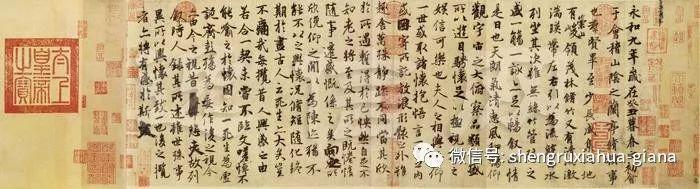 永和九年歲在癸丑暮春之初會
于會稽山陰之蘭亭脩稧事
也群賢畢至少長咸集此地
有峻領茂林脩竹又有清流激
湍暎帶左右引以為流觴曲水
列坐其次雖無絲竹管弦之
盛一觴一詠亦足以暢敘幽情
是日也天朗氣清惠風和暢仰
觀宇宙之大俯察品類之盛
所以遊目騁懷足以極視聽之
娛信可樂也夫人之相與俯仰
一世或取諸懷抱悟言一室之內
或因寄所託放浪形骸之外雖
趣舍萬殊靜躁不同當其欣
於所遇暫得於己怏然自足不
知老之將至及其所之既惓情
隨事遷感慨係之矣向之所
欣俛仰之間以為陳迹猶不
能不以之興懷況脩短隨化終
期於盡古人云死生亦大矣豈
不痛哉每攬昔人興感之由
若合一契未嘗不臨文嗟悼不
能喻之於懷固知一死生為虛
誕齊彭殤為妄作後之視今
亦由今之視昔悲夫故列
敘時人錄其所述雖世殊事
異所以興懷其致一也後之攬
者亦將有感於斯文
太上皇帝之寶
微信号: shengruxiahua-giana